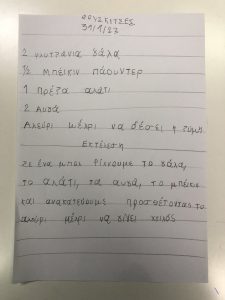 ΛΟΥΣΚΙΤΣΕΣ
31/1/23
2 φλυτζάνια γάλα
½ ΜΠΕΙΚΙΝ ΠΑΟΥΝΤΕΡ
1 Πρέζα αλάτι
2 Αυγά
Αλεύρι μέχρι να δέσει η ζύμη
Εκτέλεση
Σε ένα μπολ ρίχνουμε το γάλα,
το αλάτι, τα αυγά, το μπέικιν
και ανακατεύουμε προσθέτοντας το
αλεύρι μέχρι να γίνει χυλός